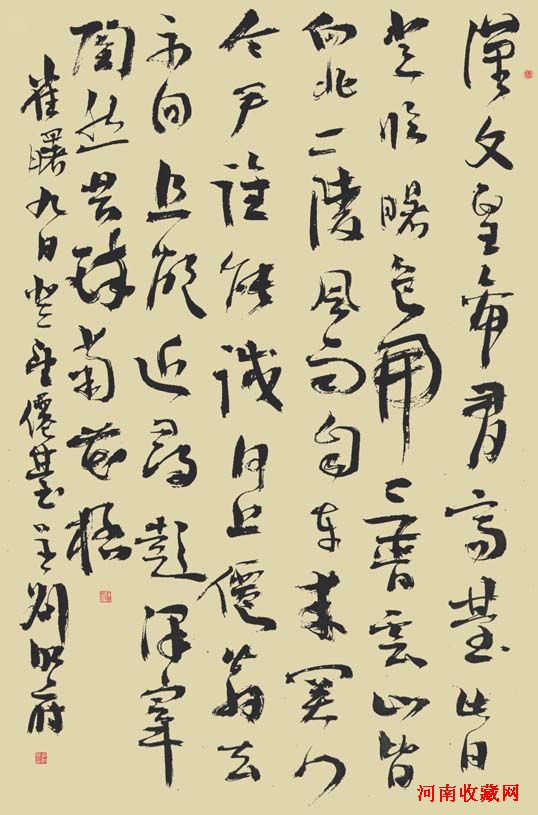 漢文皇帝有高臺此日
登臨曙色開三晉雲山皆
向北二陵風雨自東来関门
令尹誰能識河上僊翁去
不回且欲近尋彭澤宰
陶然共醉菊花杯
崔曙九日登望僊臺呈劉明府
河南收藏网